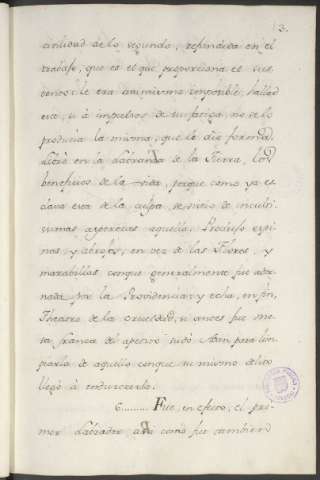 3.
utilidad de lo segundo, refundida en el
trabajo, que es el que proporciona el sus
tento: le era asi mismo imposible, hallar
este, si á impulsos de su fatiga, no se lo
producia la misma, que le dio forma,
altró en la labranza de la Tierra, los
beneficios de la vida, porque como ya es
clava era de la culpa se vistio de incultí
simas asperezas aquella. Produjo espi
nas, y abrojos, en vez de las Flores, y
marabillas conque generalmente fue ador
nada por la Providencia: y echa, en fin,
Theatro de la crueldad, si antes fue me
sa franca del apenas sudó Adan para lim
piarla de aquello conque su mismo delito
llegó á endurecerla.
6......... Fue, en efecto, el pri
mer Labrador, asi como fue tambien